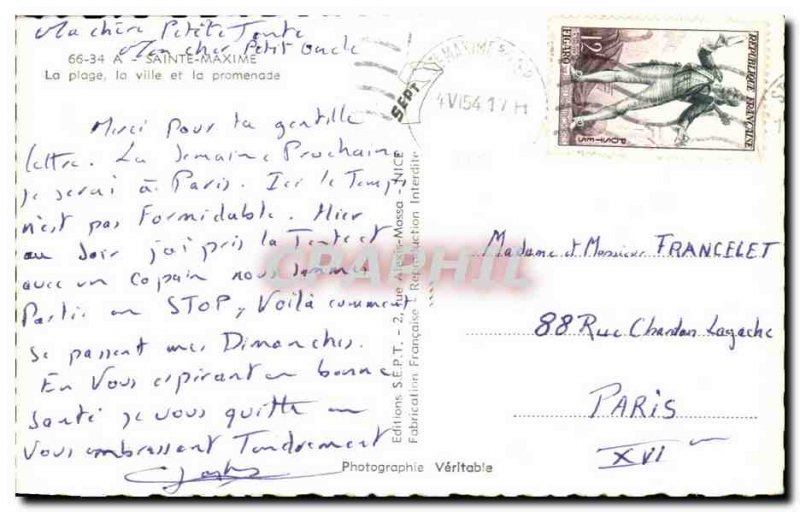 Ma chère Petite Tante
Mon cher Petit Oncle
66-34 A - SAINTE-MAXIME
La plage, la ville et la promenade
Merci pour ta gentille
lettre. La Semaine Prochaine
je serai à Paris. Ici le Temps
n'est pas Formidable. Hier
au Soir j'ai pris la Tente et
avec un copain nous sommes
Partis en STOP, Voilà comment
se passent mes Dimanches.
En Vous espérant en bonne
Santé je vous quitte en
Vous embrassant Tendrement
SEPT
Editions S.E.P.T. - 2, rue Alexis-Mossa - NICE
Fabrication Française - Reproduction Interdite
Photographie Véritable
4 VI 54 17 H
12F
FIGARO
REPUBLIQUE FRANÇAISE
POSTES
Madame et Monsieur FRANCELET
88 Rue Chardon Lagache
PARIS
XVI
CPARPHIL